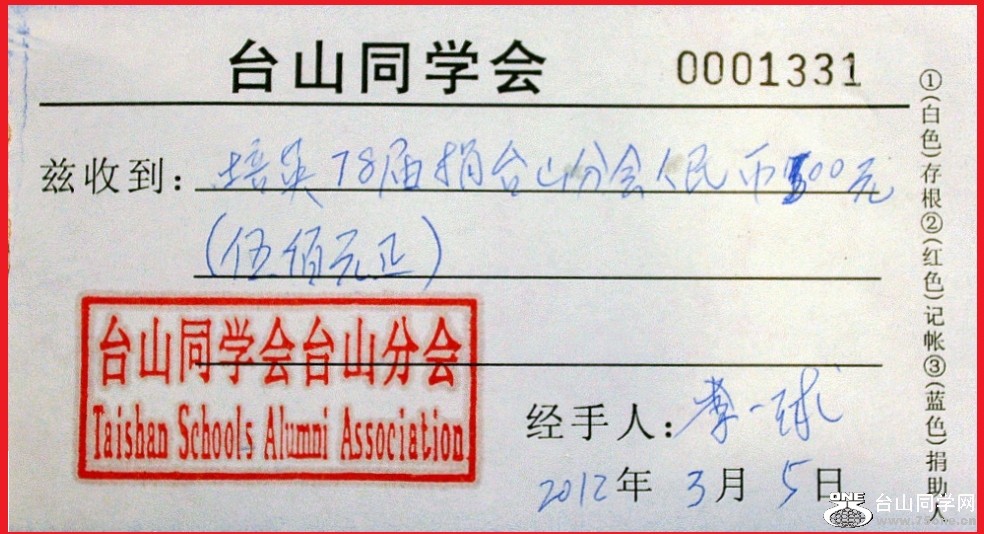 台山同学会
0001331
兹收到：培英78届捐台山分会人民币500元
（伍佰元正）
台山同学会台山分会
Taishan Schools Alumni Association
经手人：李一球
2012年3月5日
①（白色）存根②（红色）记帐③（蓝色）捐助人
ONE
台山同学网